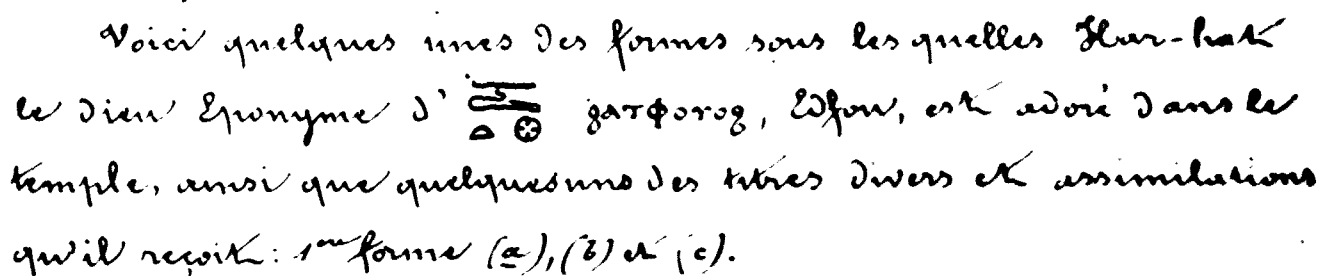 Voici quelques unes des formes sous les quelles Har-hat
le dieu Eponyme d' , Edfou, est adoré dans le
temple, ainsi que quelques uns des titres divers et assimilations
qu'il reçoit: 1ere forme (a), (b) et (c).